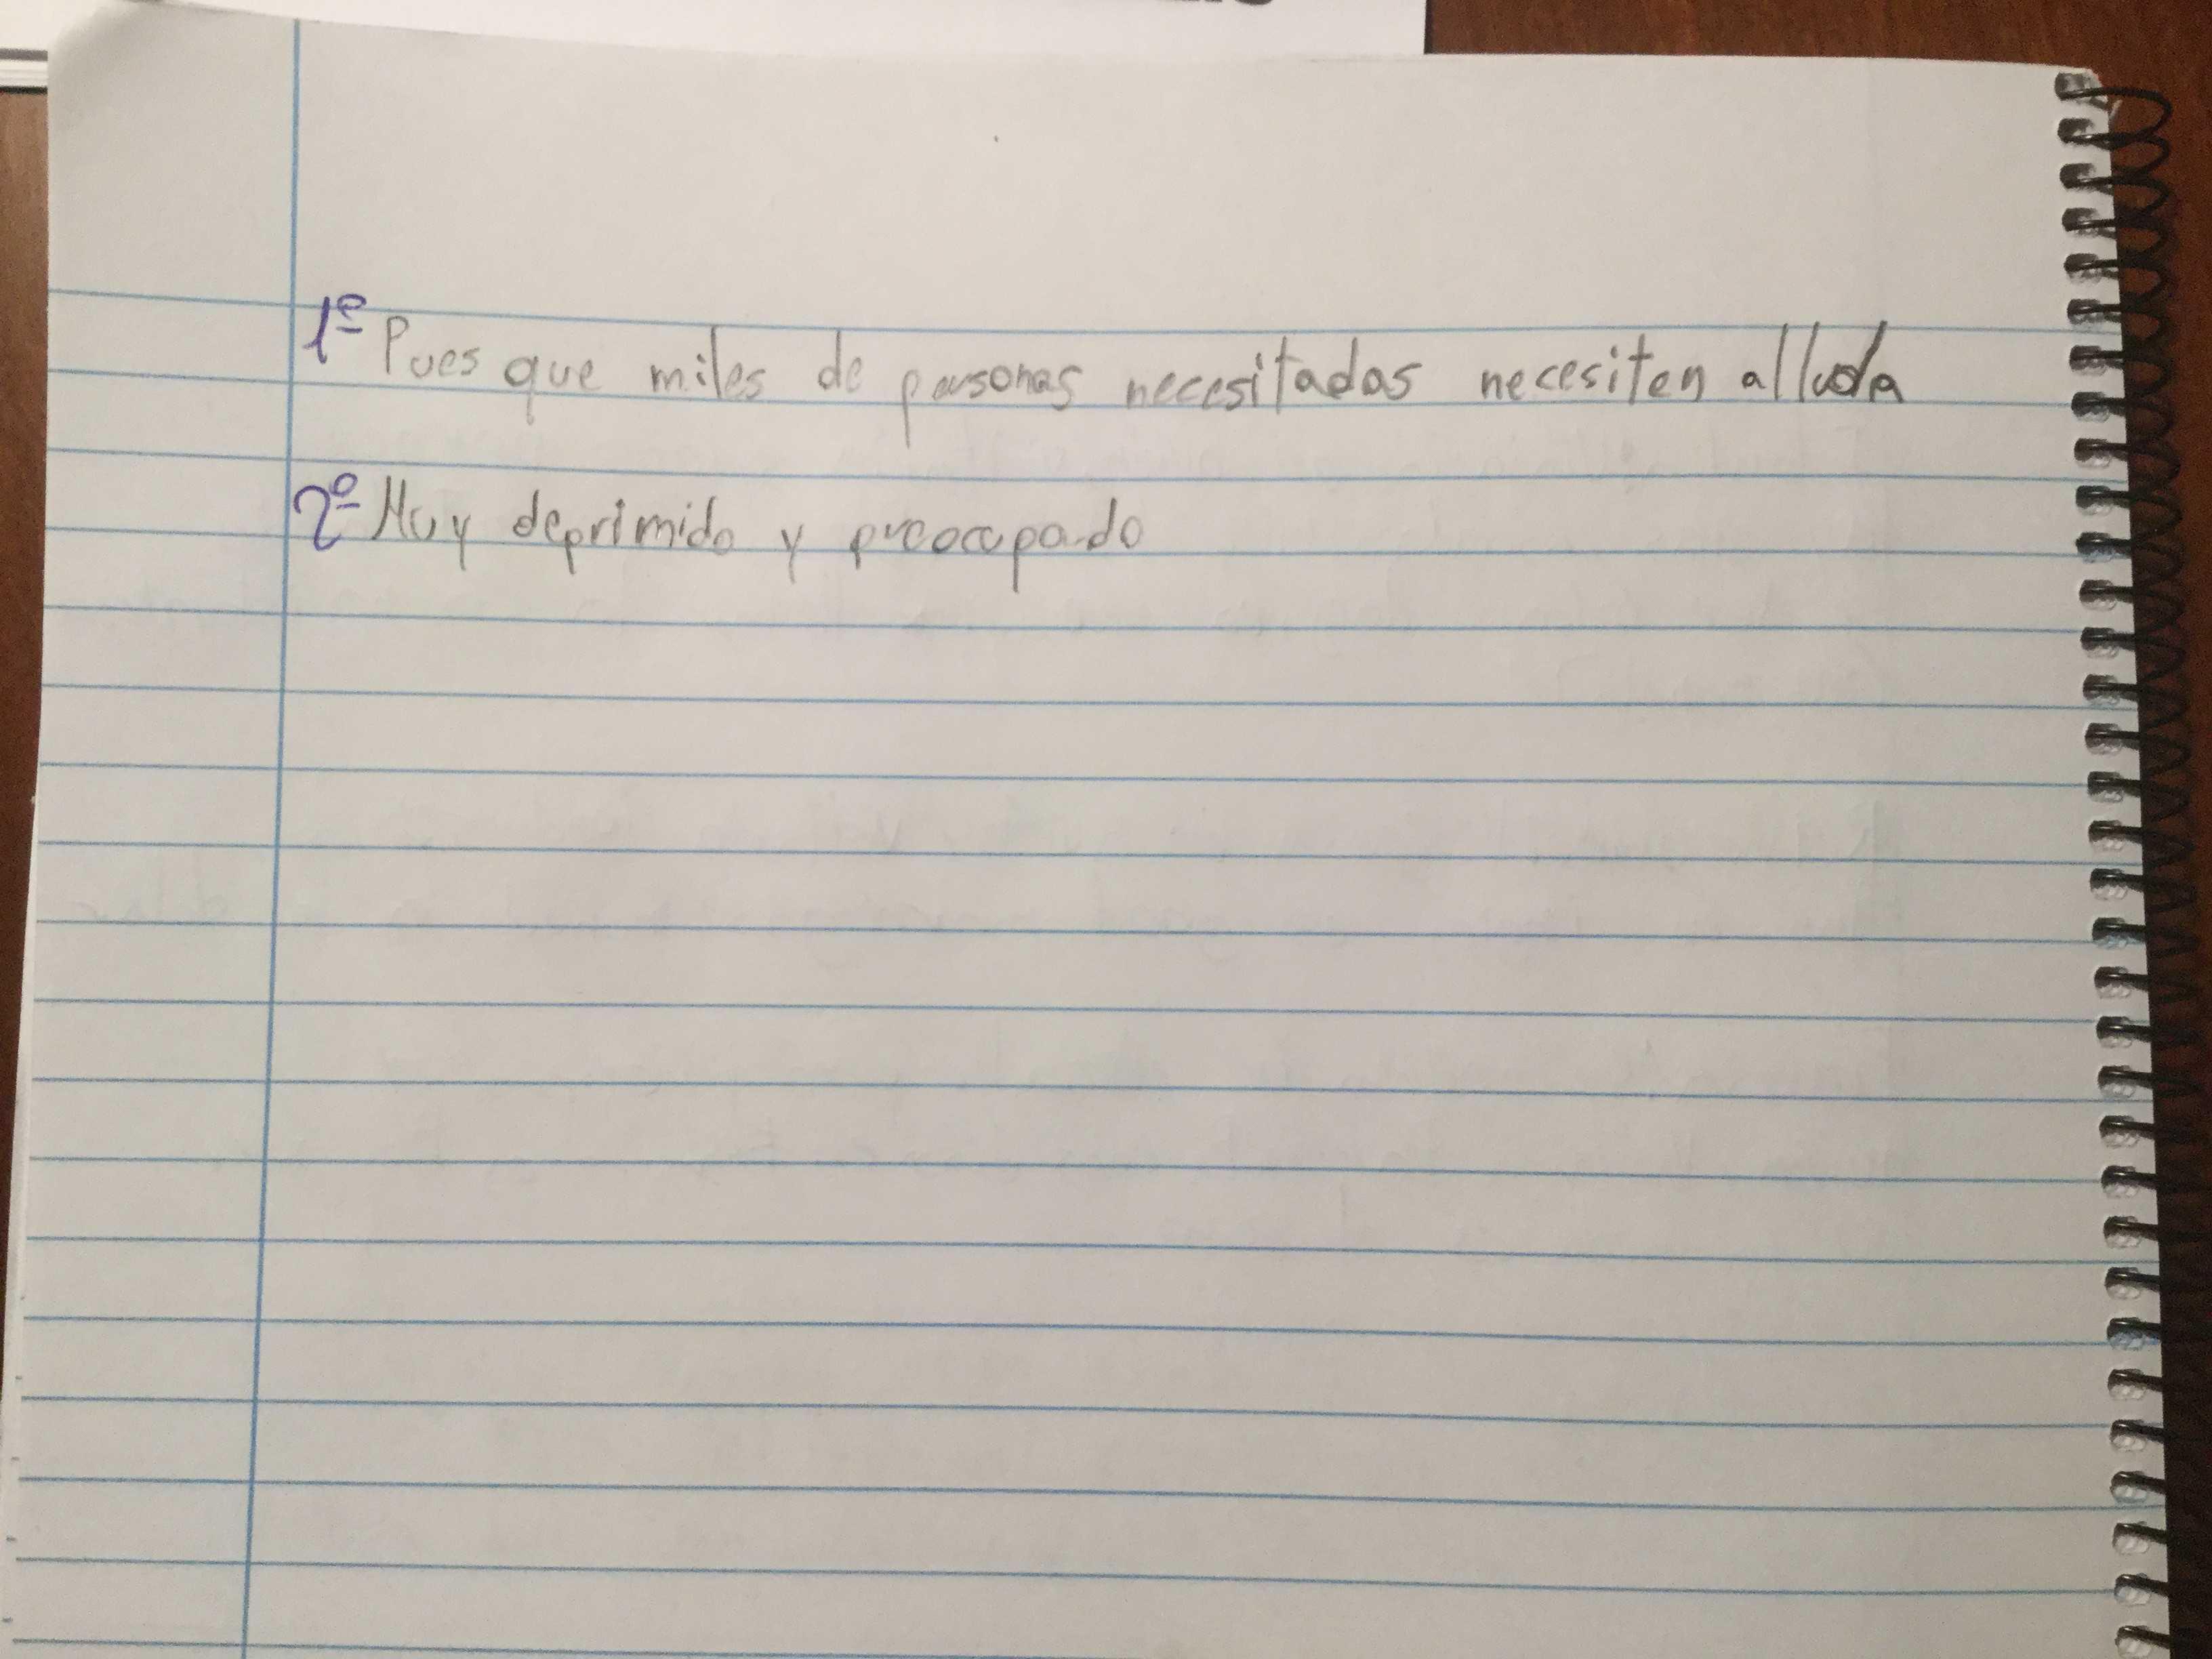 1º Pues que miles de personas necesitadas necesiten alluda
2º Muy deprimido y preocupado